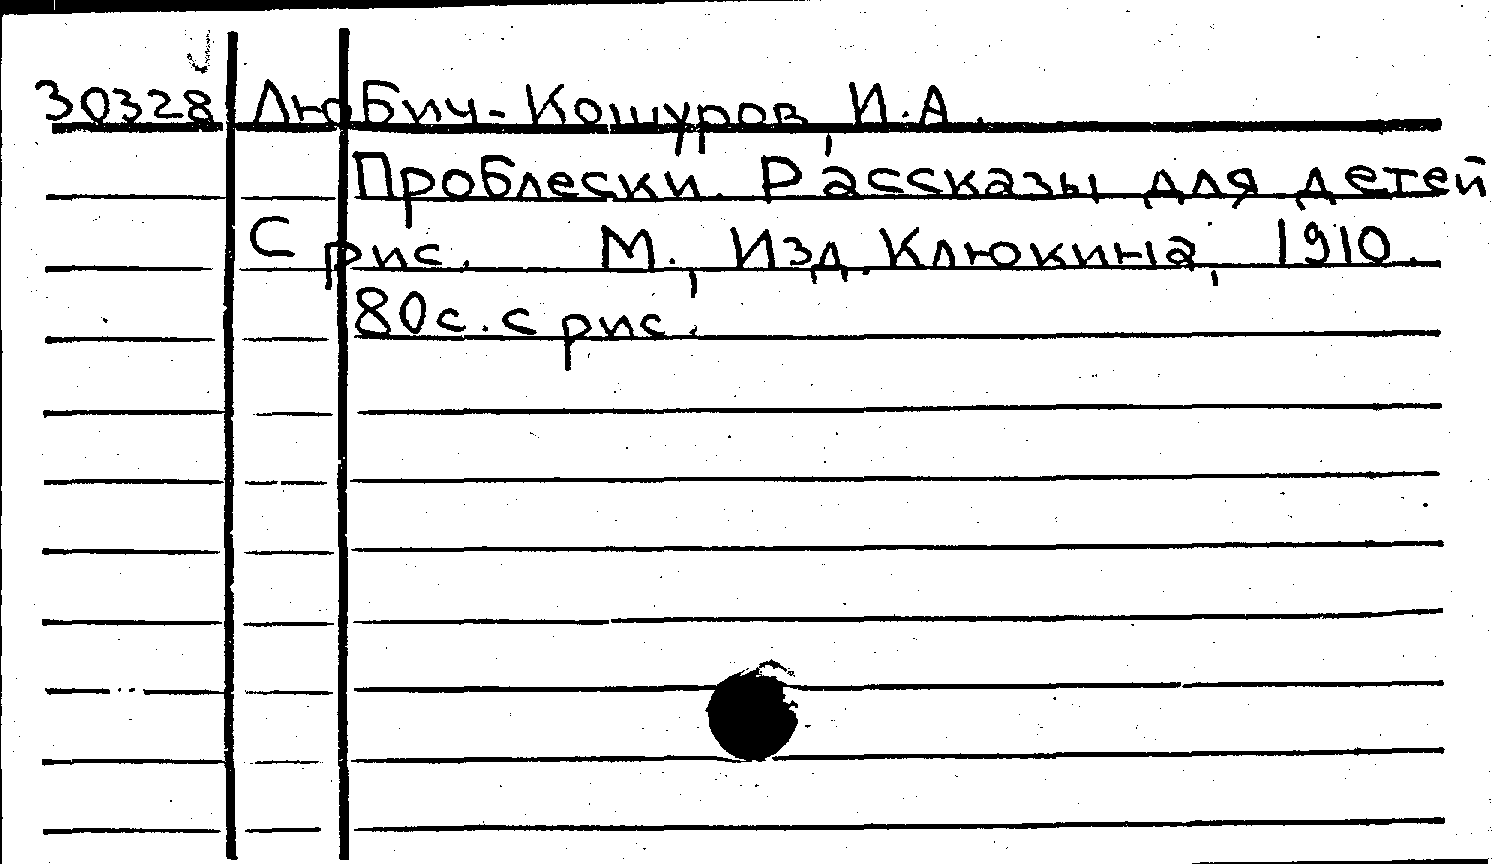 30328 Любич-Кошуров, И.А.
Проблески. Рассказы для детей
С рис. М., Изд. Клюкина, 1910.
80с. с рис.